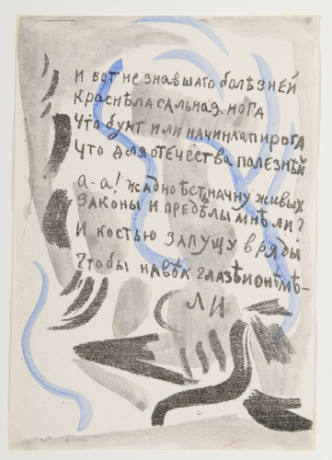 И вот не знавшаго болѣзней
Краснѣла сальная нога
Что бунт или начинка пирога
Что для отечества полезнѣй
а-а! жадно ѣст, начну живых
Законы и предѣлы мнѣ ли?
И костью запущу в ряды
Чтобы навѣк глазѣ онѣмѣ-
ЛИ